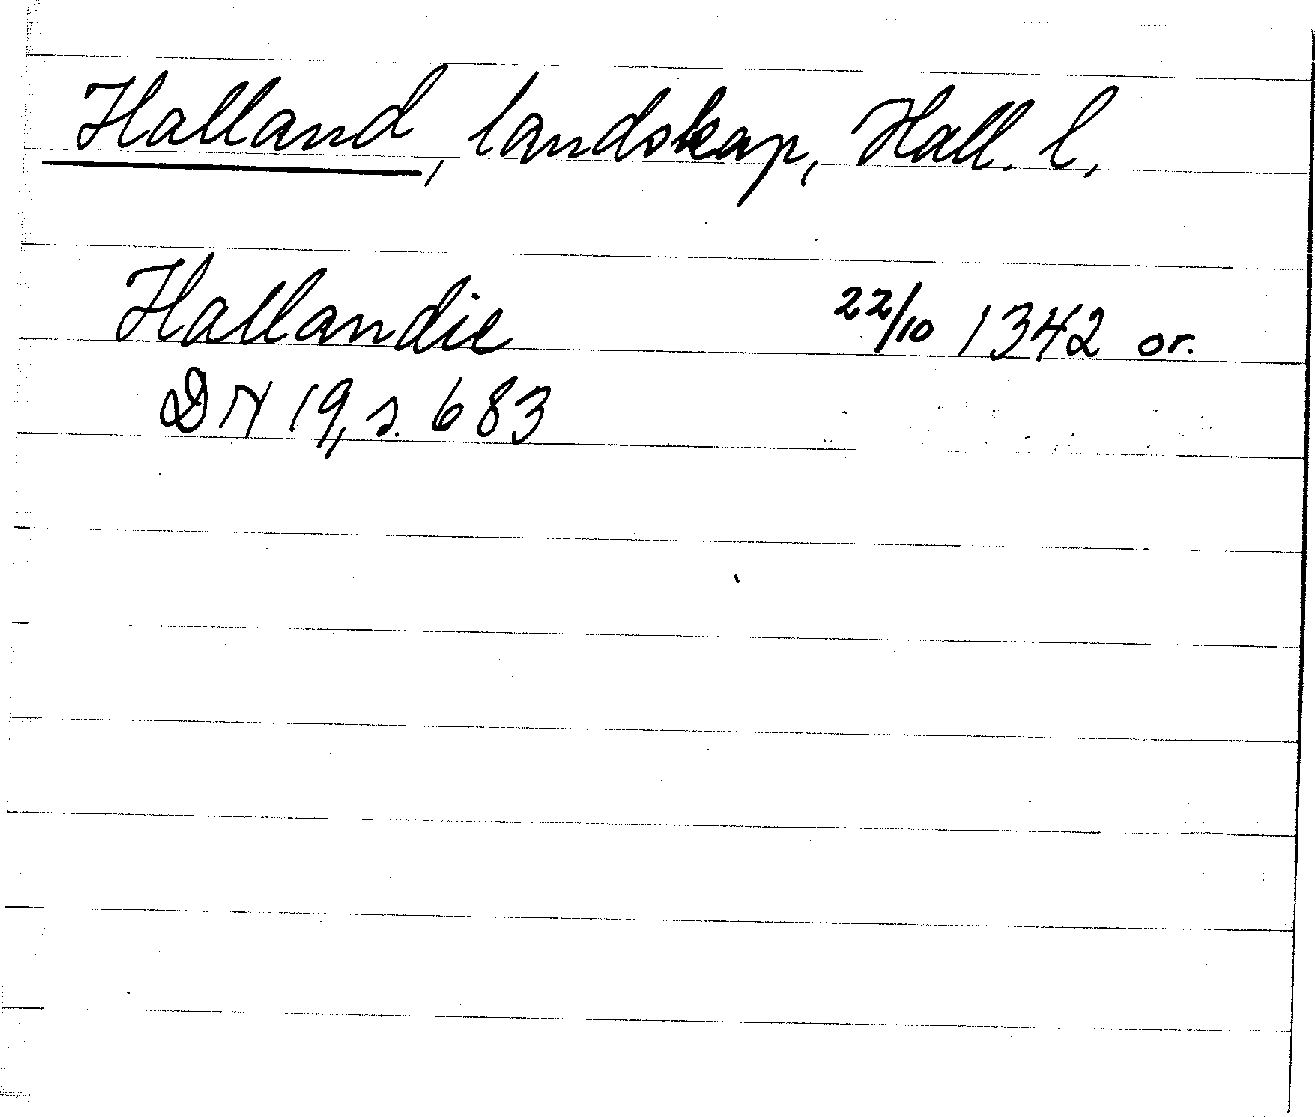 Halland, landskap, Hall. l,
Hallandie 22/10 1342 or.
DN 19, s. 683